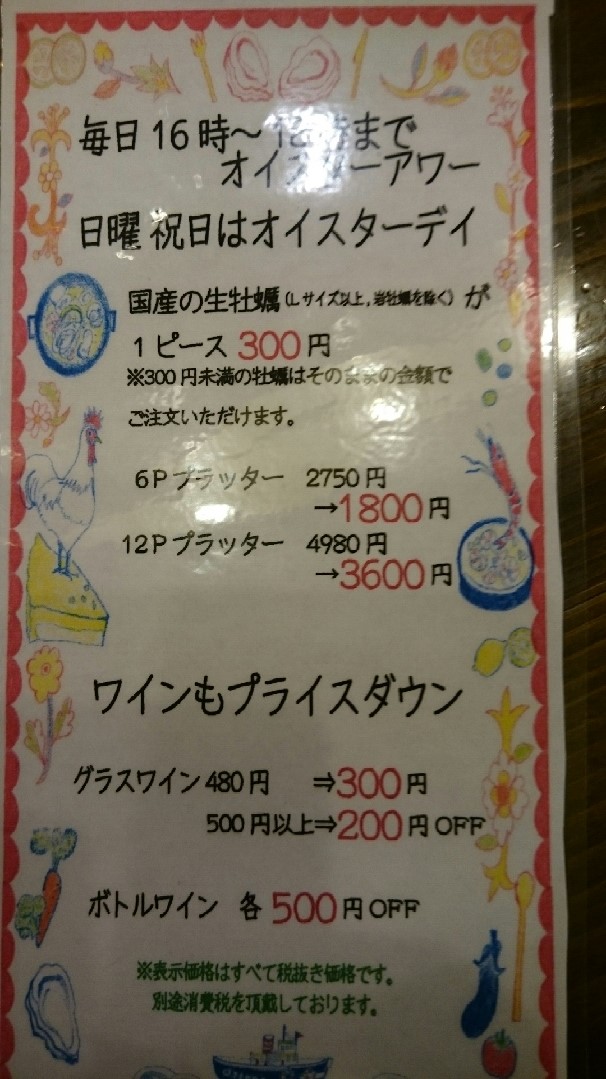 毎日16時～ まで
オイスターアワー
日曜 祝日はオイスターデイ
国産の生牡蠣(Lサイズ以上,岩牡蠣を除く)が
1ピース 300円
※300円未満の牡蠣はそのままの金額で
ご注文いただけます。
6Pプラッター 2750円
→1800円
12Pプラッター 4980円
→3600円
ワインもプライスダウン
グラスワイン480円 ⇒300円
500円以上⇒200円OFF
ボトルワイン 各500円OFF
※表示価格はすべて税抜き価格です。
別途消費税を頂戴しております。